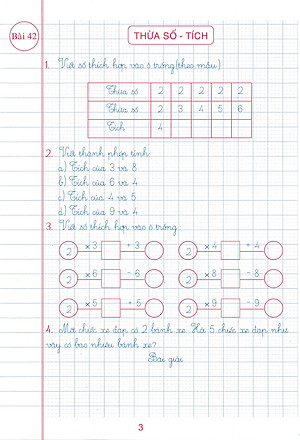 Bài 42
THỪA SỐ - TÍCH
1. Viết số thích hợp vào ô trống (theo mẫu)
Thừa số 2 2 2 2 2
Thừa số 2 3 4 5 6
Tích 4
2. Viết thành phép tính
a) Tích của 3 và 8
b) Tích của 6 và 4
c) Tích của 4 và 5
d) Tích của 9 và 4
3. Viết số thích hợp vào ô trống
2 × 3 + 3 2 × 4 + 4
2 × 6 - 6 2 × 8 - 8
2 × 5 + 5 2 × 9 - 9
4. Một chiếc xe đạp có 2 bánh xe. Hỏi 5 chiếc xe đạp như
vậy có bao nhiêu bánh xe?
Bài giải
3